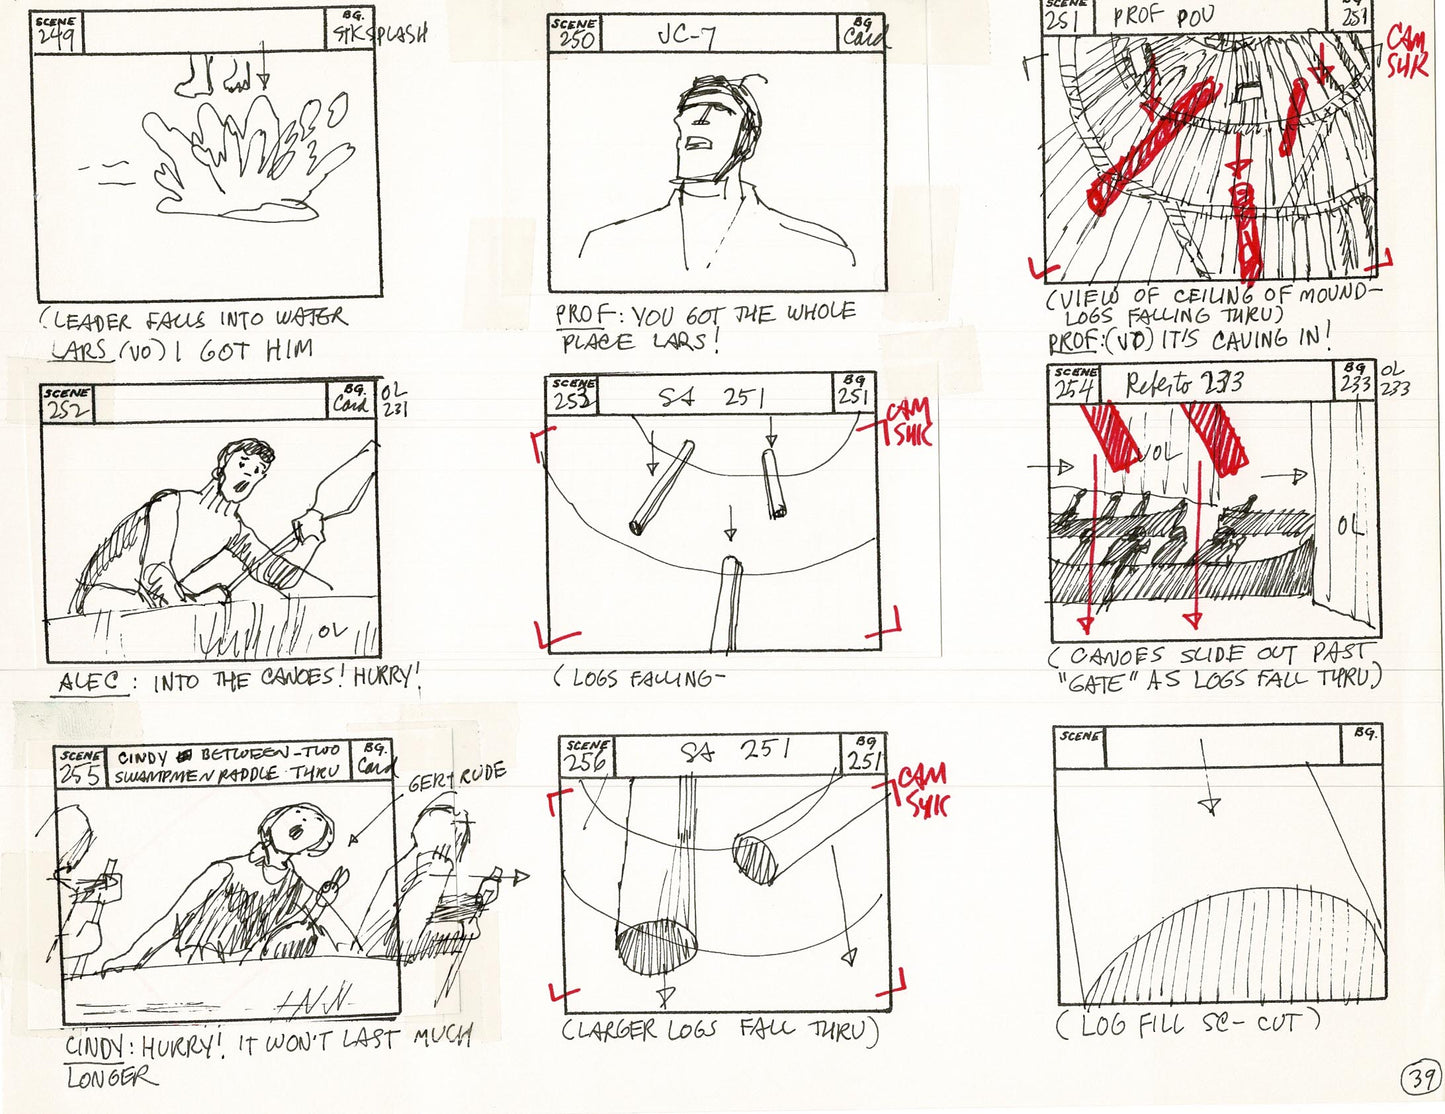 SCENE 249
BG.
STK SPLASH
(LEADER FALLS INTO WATER
LARS (VO) I GOT HIM
SCENE 250
JC-7
BG
Card
PROF: YOU GOT THE WHOLE
PLACE LARS!
SCENE 251
PROF POV
BG
251
CAM
SHK
(VIEW OF CEILING OF MOUND-
LOGS FALLING THRU)
PROF:(VO) IT'S CAVING IN!
SCENE 252
BG.
Card
OL
231
OL
ALEC: INTO THE CANOES! HURRY!
SCENE 253
SA 251
BG
251
CAM
SHK
(LOGS FALLING-
SCENE 254
Refer to 233
BG
233
OL
233
OL
OL
(CANOES SLIDE OUT PAST
"GATE" AS LOGS FALL THRU)
SCENE 255
CINDY BETWEEN-TWO
SWAMPMEN PADDLE THRU
BG.
Card
GERTRUDE
CINDY: HURRY! IT WON'T LAST MUCH
LONGER
SCENE 256
SA 251
BG
251
CAM
SHK
(LARGER LOGS FALL THRU)
SCENE
BG.
(LOG FILL SC-CUT)
39